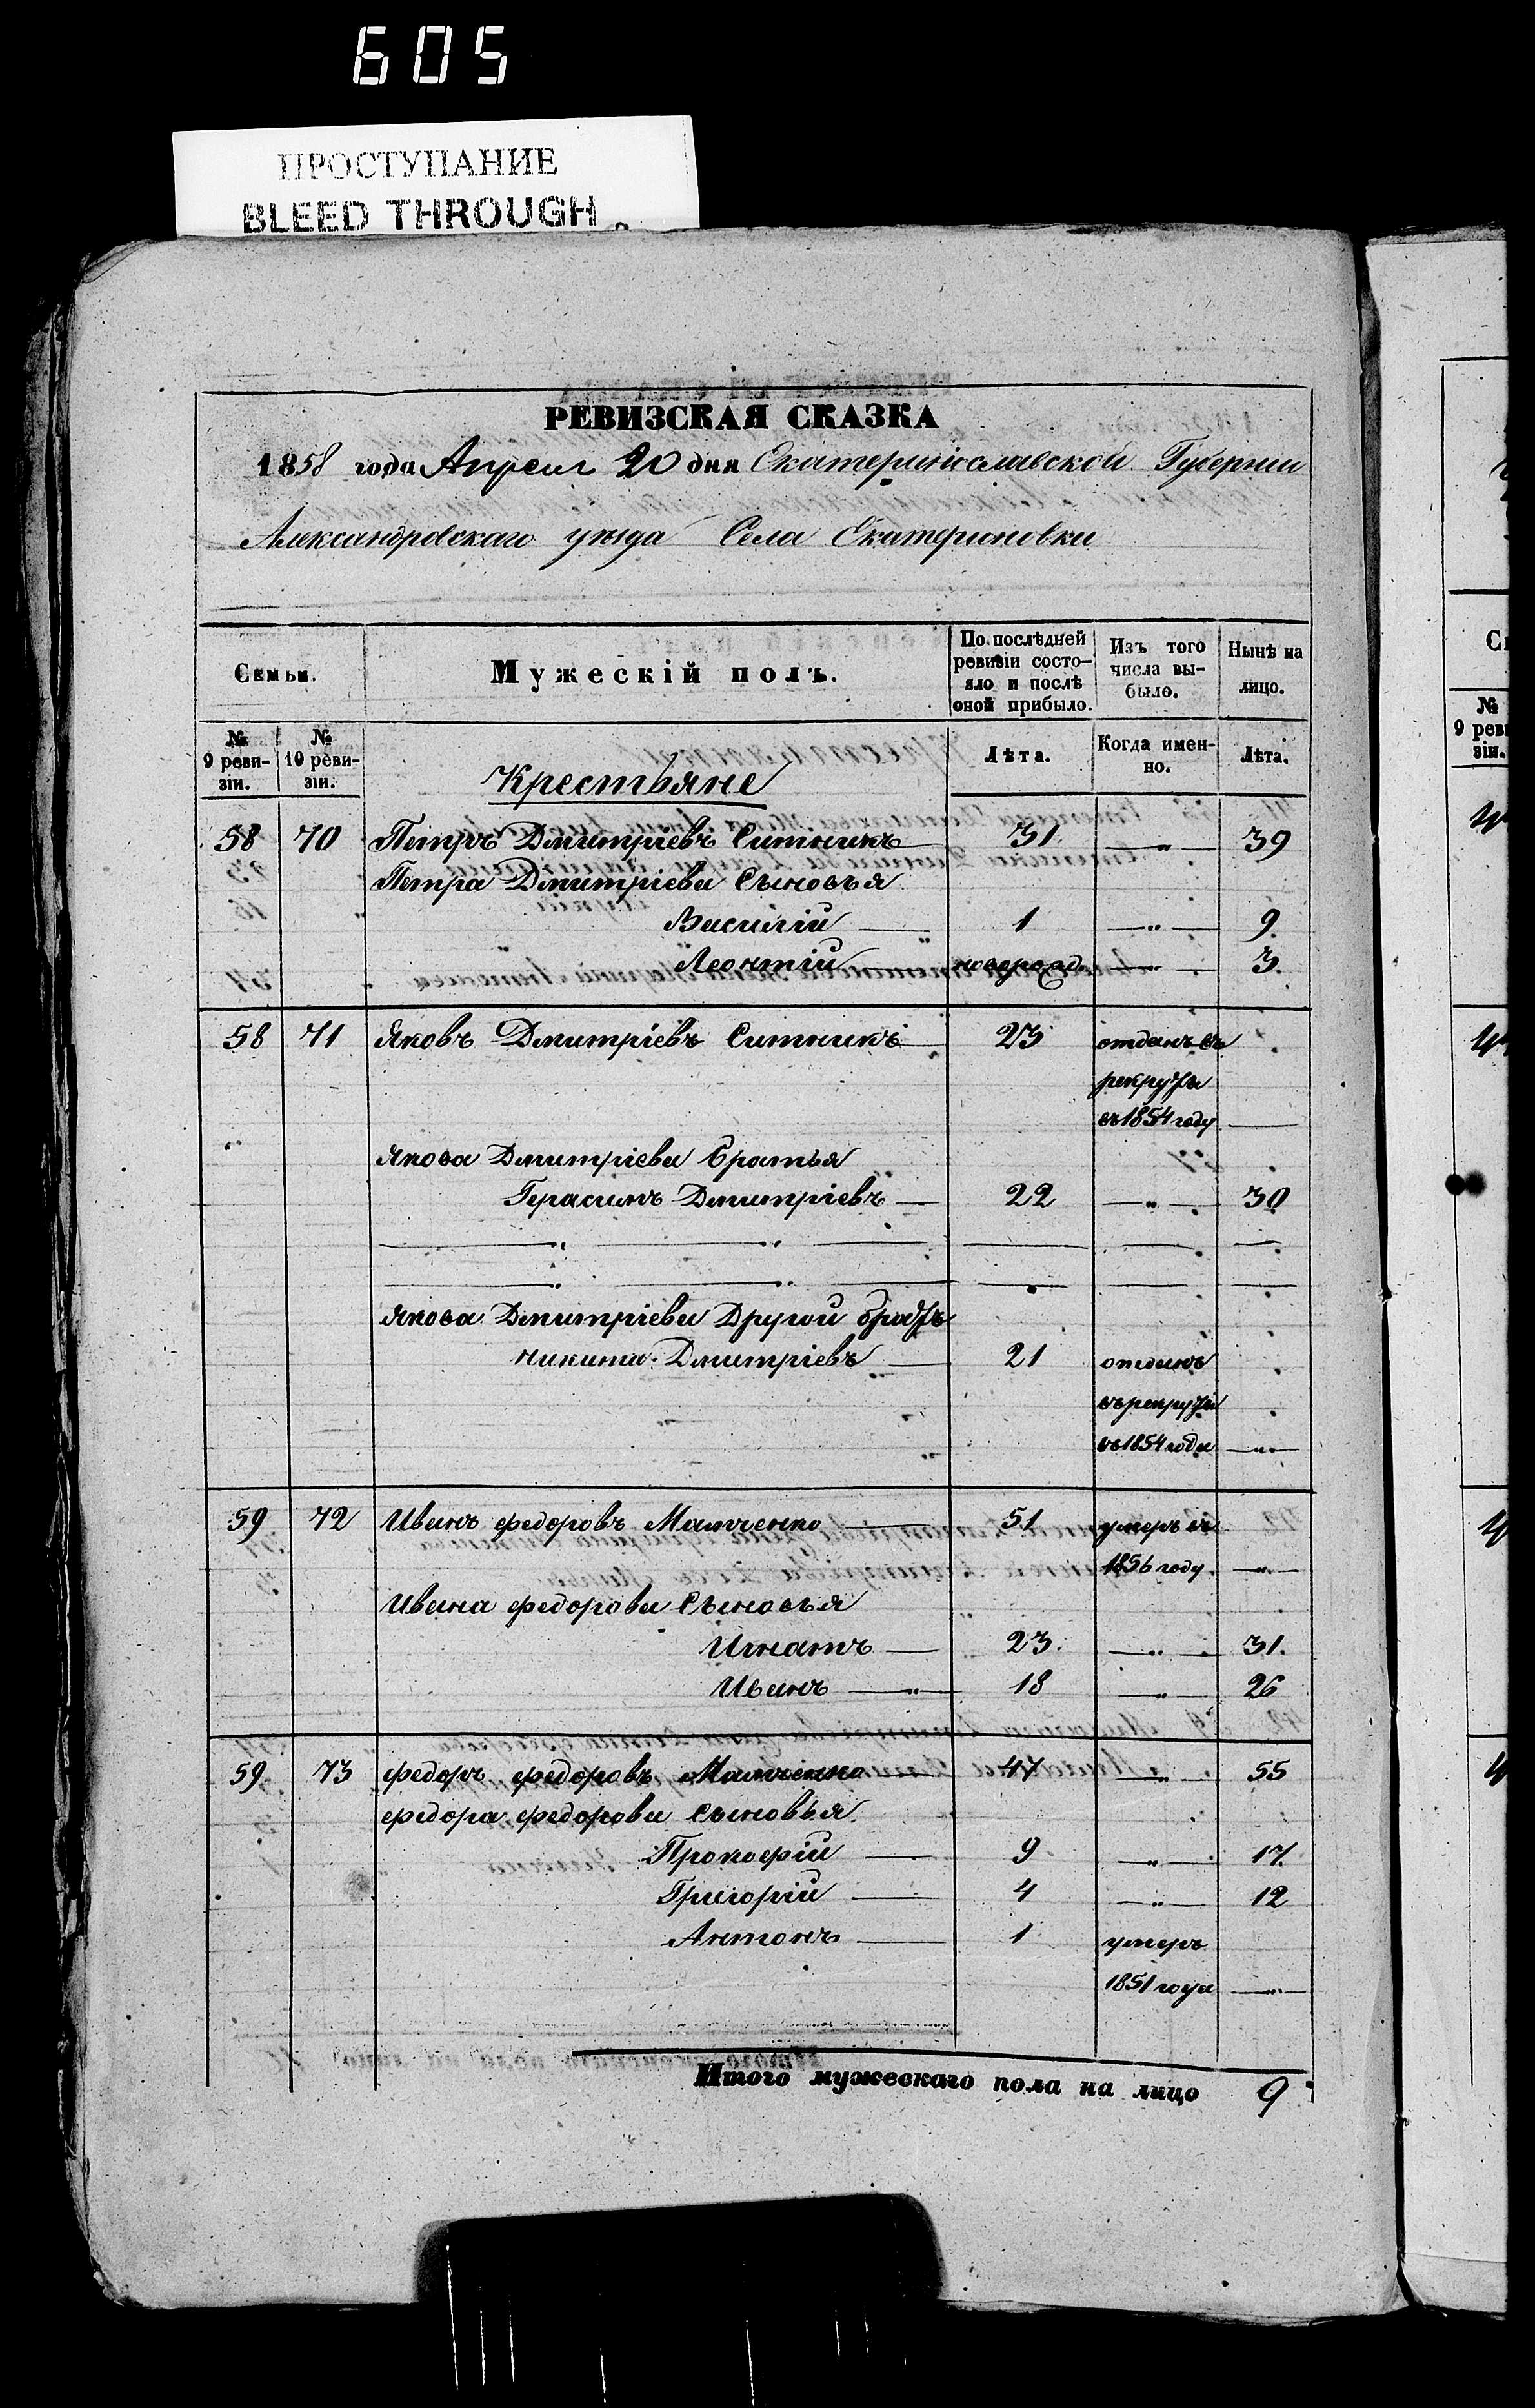 605
ПРОСТУПАНИЕ
BLEED THROUGH.
РЕВИЗСКАЯ СКАЗКА
1858 года Апреля 20 дня Екатеринославской Губернии
Александровскаго уезда Села Екатериновки
Семьи. Мужескій полъ. По послѣдней ревизіи состояло и послѣ оной прибыло. Изъ того числа выбыло. Нынѣ на лицо.
№ 9 ревизіи. № 10 ревизіи. Лѣта. Когда именно. Лѣта.
Крестьяне
58 70 Петръ Дмитріевъ Ситникъ 31 — „ — 39
Петра Дмитріева Сыновья
Василій — 1 — „ — 9.
Леонтій — новорожд — „ — 3.
58 71 Яковъ Дмитріевъ Ситникъ 23 отданъ въ
рекруты
въ 1854 году —
Якова Дмитріева братья
Герасимъ Дмитріевъ — 22 — „ — 30
Якова Дмитріева Другой братъ
Никита Дмитріевъ — 21 отданъ
въ рекруты
въ 1854 года — „ —
59 72 Иванъ Федоровъ Мамченко — 51 умеръ въ
1856 году. — „ —
Ивана Федорова Сыновья
Игнатъ — 23. — „ — 31.
Иванъ — „ — 18 — „ — 26
59 73 Федоръ Федоровъ Мамченко — 47 — „ — 55
Федора Федорова Сыновья.
Прокофій — 9 — „ — 17.
Григорій — 4 — „ — 12
Антонъ — 1 умеръ
1851 года — „ —
Итого мужескаго пола на лицо 9